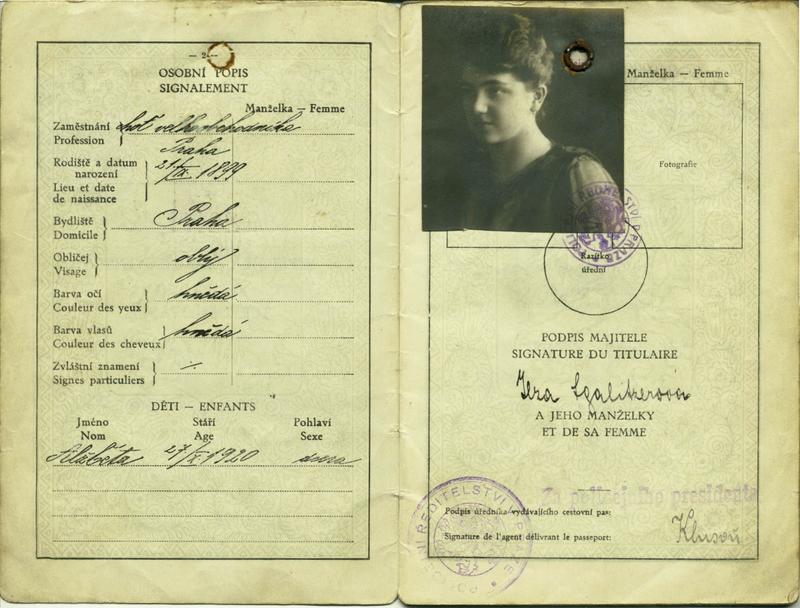 — 2 —
OSOBNÍ POPIS
SIGNALEMENT
Manželka — Femme
Zaměstnání choť velkoobchodníka
Profession
Praha
Rodiště a datum narození 21/IX. 1899
Lieu et date de naissance
Bydliště Praha
Domicile
Obličej oblý
Visage
Barva očí hnědá
Couleur des yeux
Barva vlasů hnědá
Couleur des cheveux
Zvláštní znamení ·/·
Signes particuliers
DĚTI — ENFANTS
Jméno Stáří Pohlaví
Nom Age Sexe
Alžběta 27/X. 1920 dcera
Manželka — Femme
Fotografie
Razítko úřední
PODPIS MAJITELE
SIGNATURE DU TITULAIRE
A JEHO MANŽELKY
ET DE SA FEMME
Za policejního presidenta
Podpis úředníka vydávajícího cestovní pas:
Signature de l'agent délivrant le passeport: